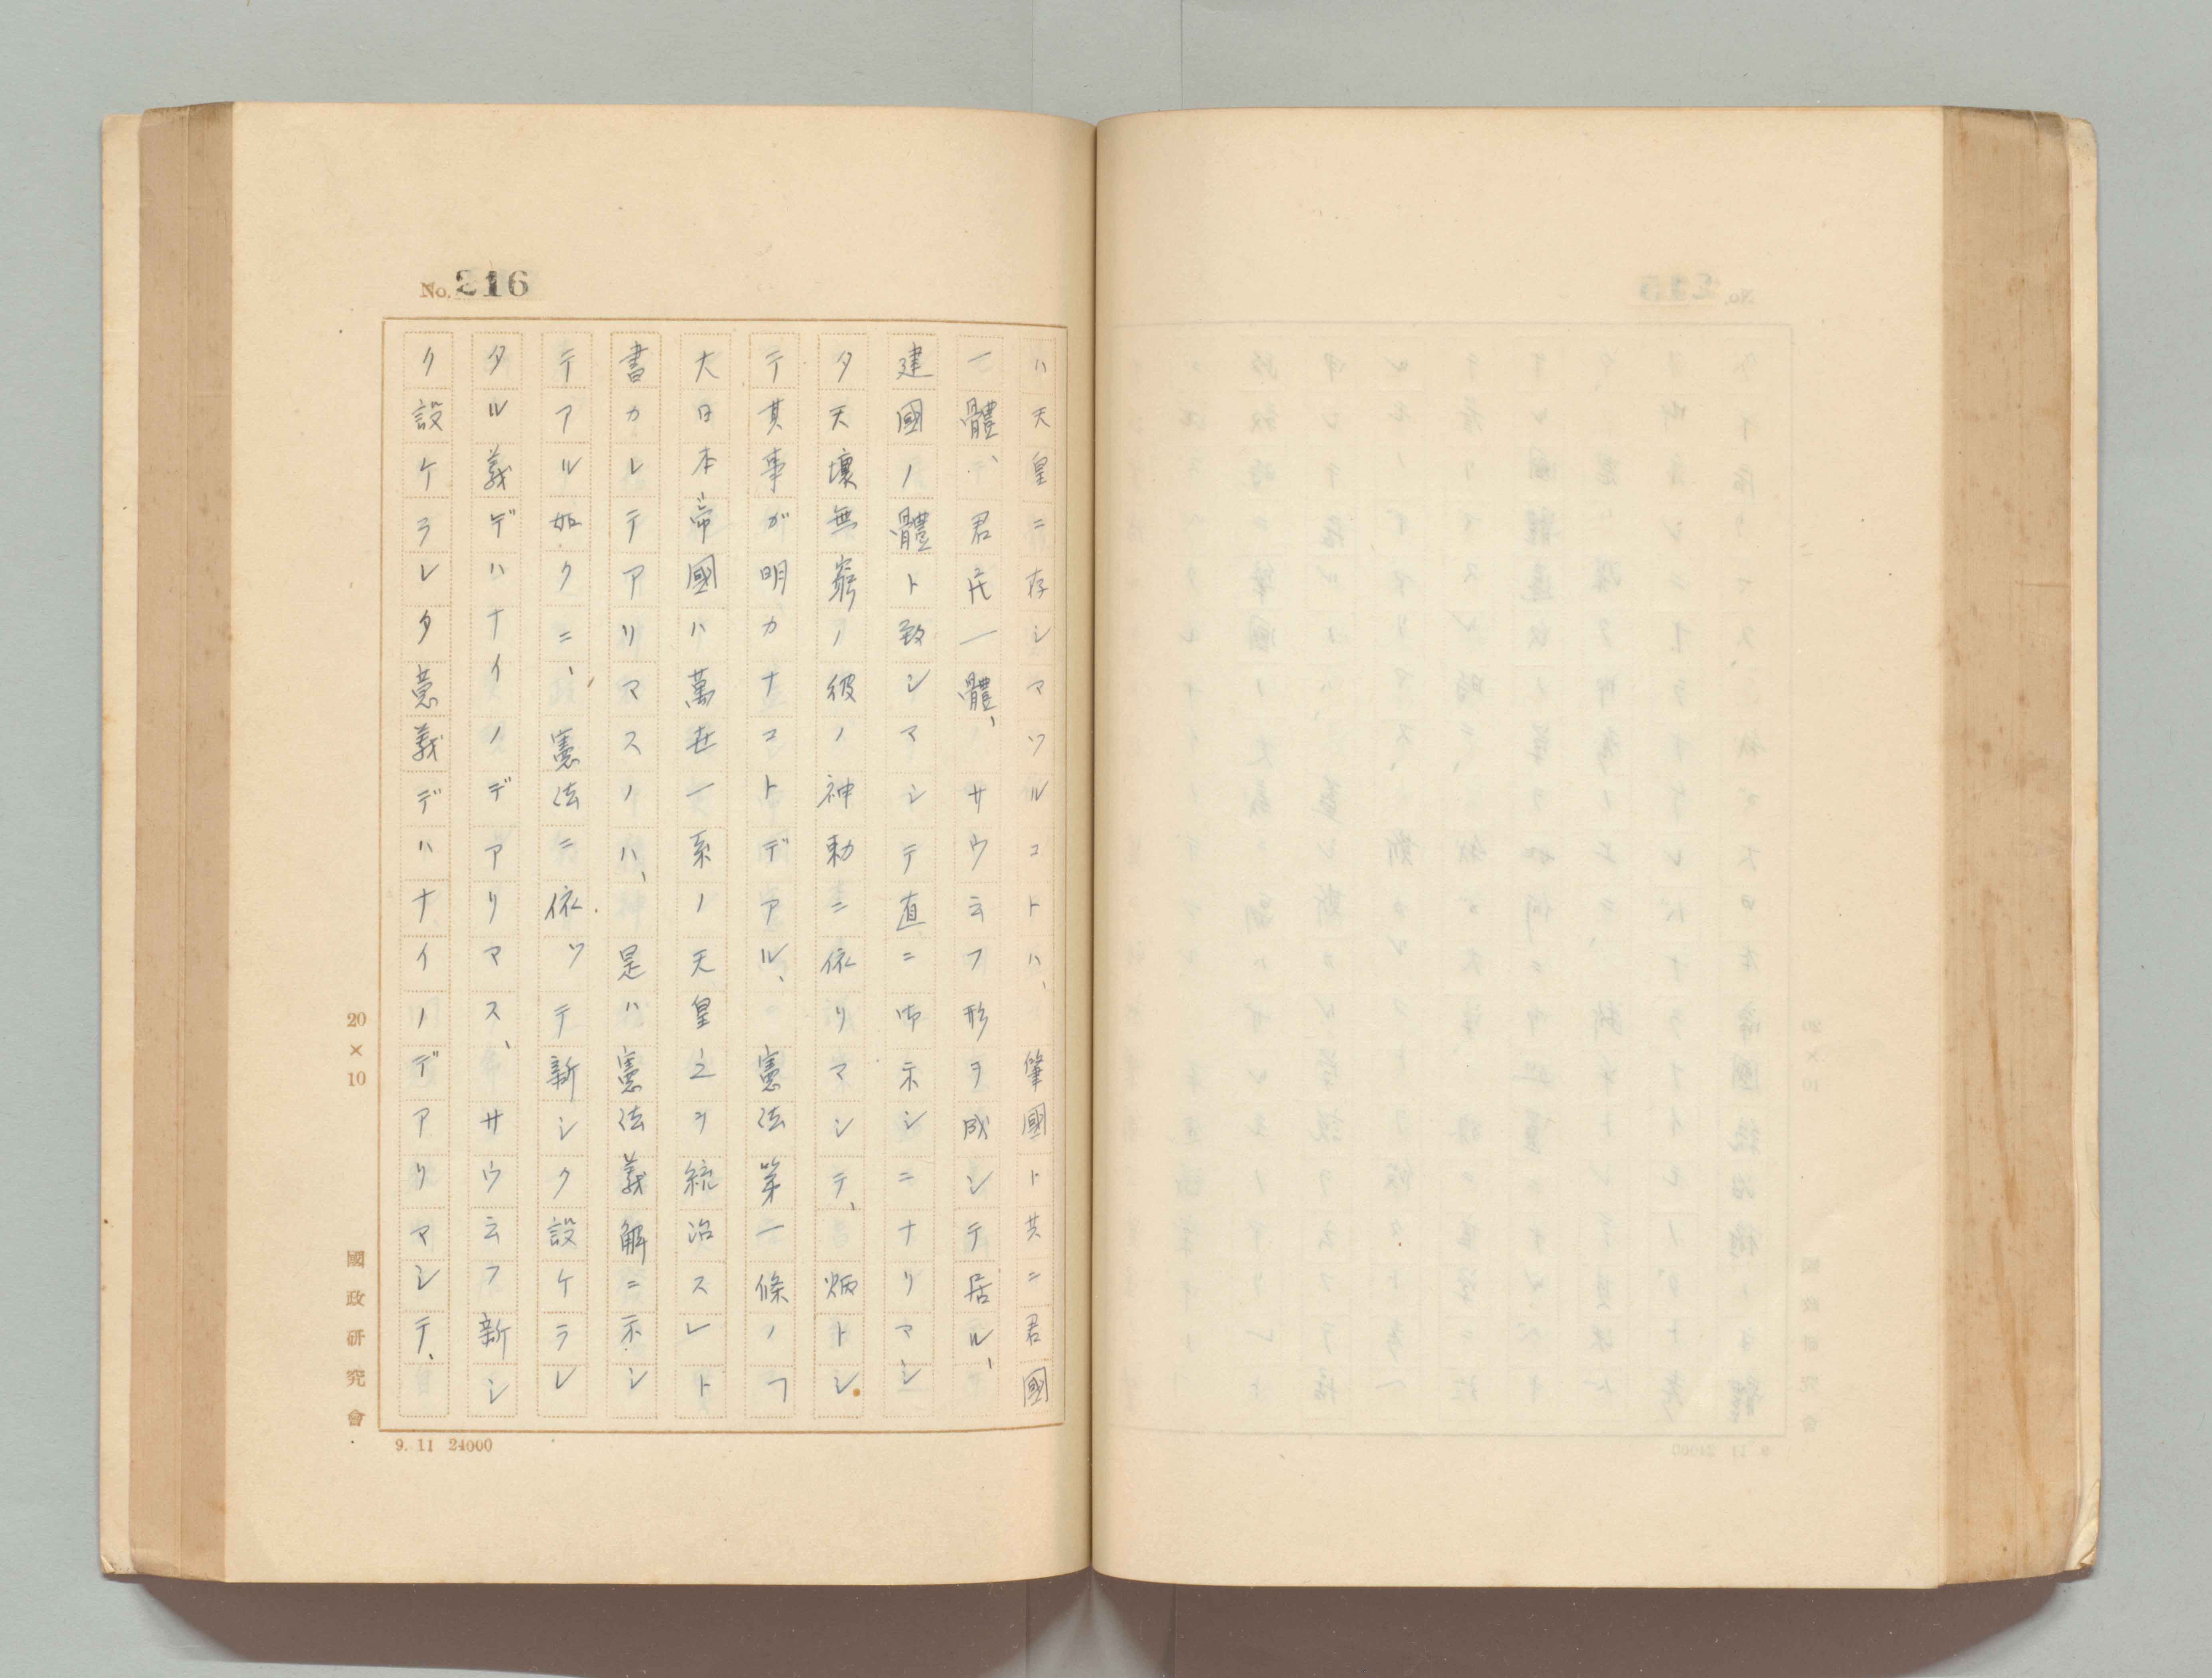 No. 216
ハ天皇ニ存シマツルコトハ、肇國ト共ニ君國
一體、君民一體、サウ云フ形ヲ成シテ居ル、
建國ノ體ト致シマシテ直ニ御示シニナリマシ
タ天壤無窮ノ彼ノ神勅ニ依リマシテ、炳トシ
テ其事ガ明カナコトデアル、憲法第一條ノ「
大日本帝國ハ萬世一系ノ天皇之ヲ統治スレト
書カレテアリマスノハ、是ハ憲法義解ニ示シ
テアル如クニ、憲法ニ依ツテ新シク設ケラレ
タル義デハナイノデアリマス、サウ云フ新シ
ク設ケラレタ意義デハナイノデアリマシテ、
20×10
國政研究會
9. 11 24000